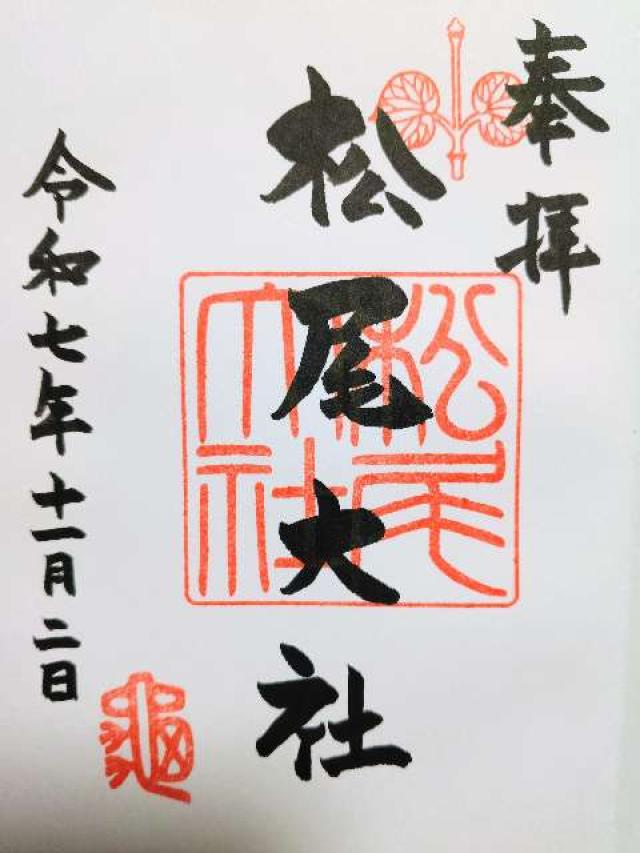 奉拝
松尾大社
松尾大社
令和七年十一月二日
亀